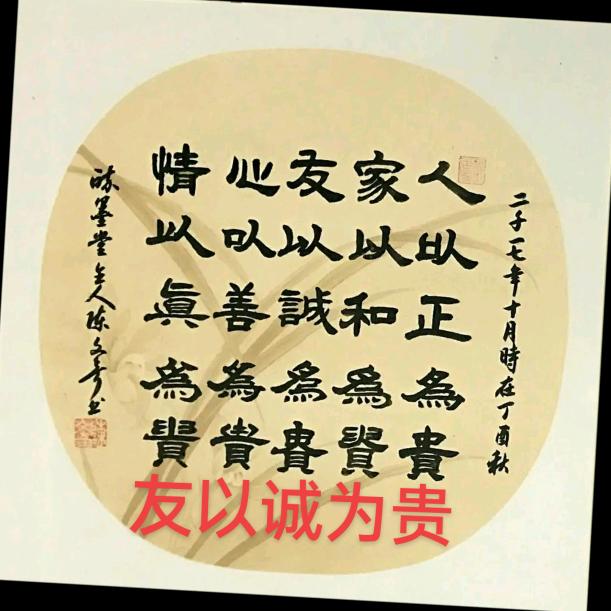 二千一七年十月時在丁酉秋
人以正為貴
家以和為貴
友以誠為貴
心以善為貴
情以眞為貴
墨堂主人陈文奇书
友以诚为贵